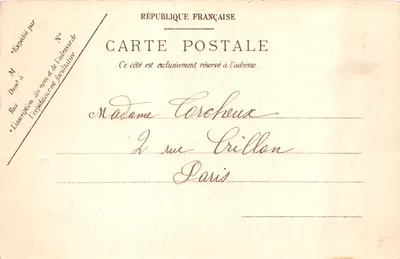 RÉPUBLIQUE FRANÇAISE
CARTE POSTALE
Ce côté est exclusivement réservé à l'adresse.
*Expédié par
M
Demt à
Rue
N°
*L'inscription du nom et de l'adresse de
l'expéditeur est facultative
Madame Torcheux
2 rue Crillon
Paris